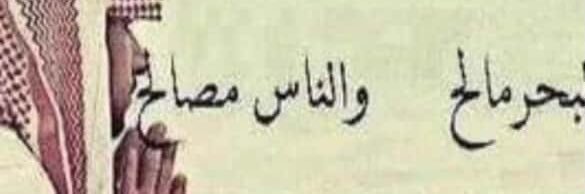 لبحر مالح والناس مصالح